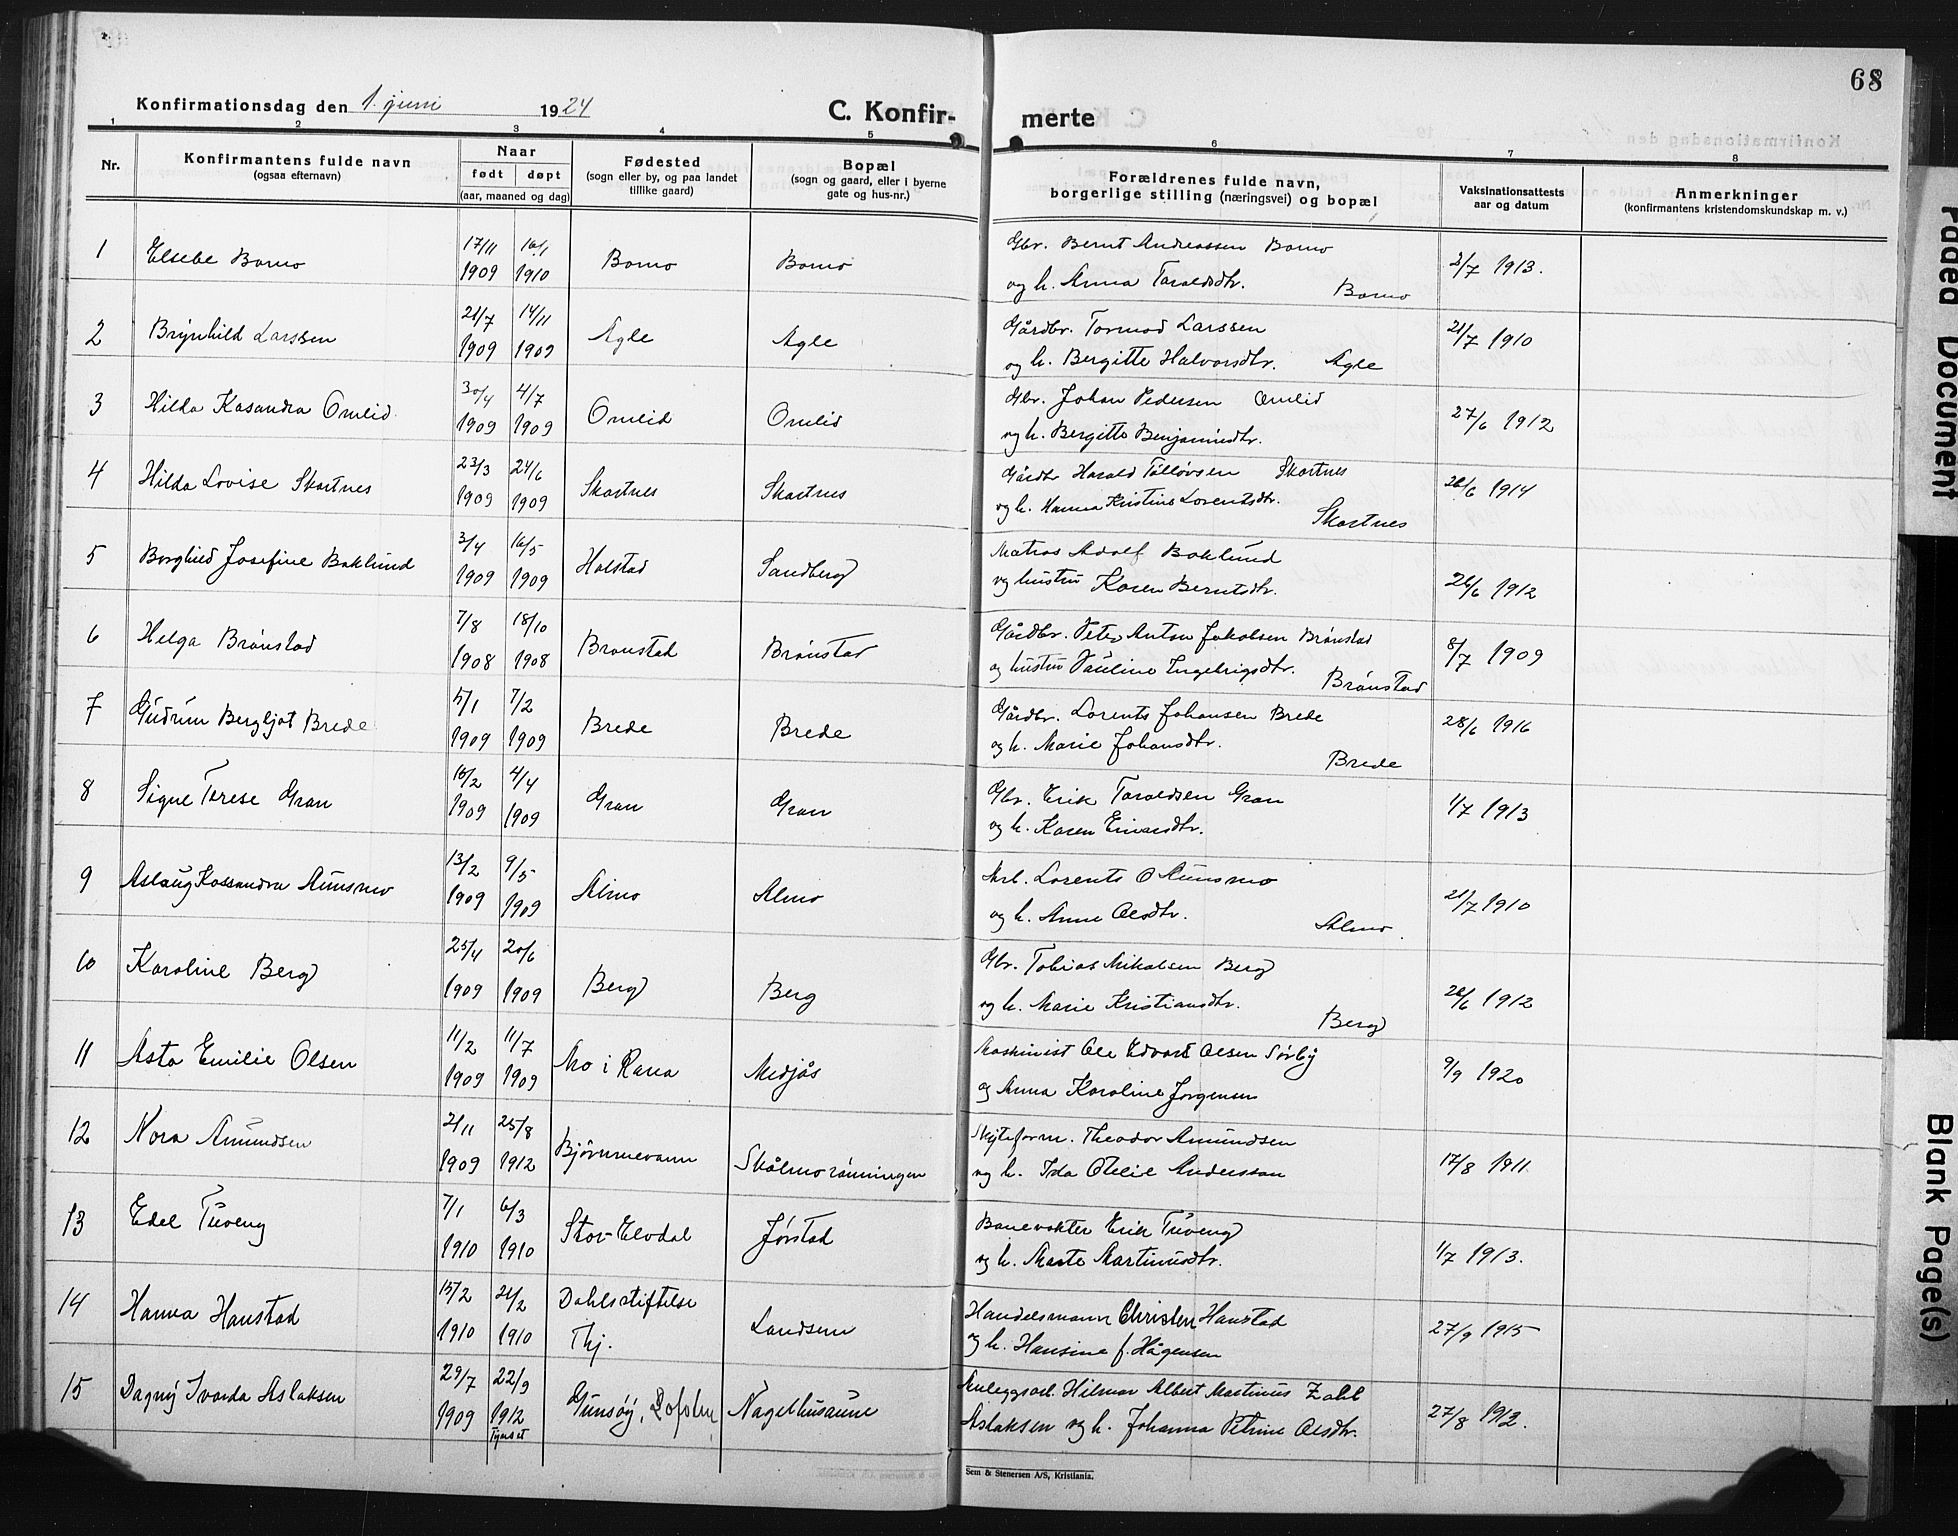 68
Konfirmationsdag den 1. juni 1924
C. Konfir-
merte
1 2 3 4 5 6 7 8
Nr.
Konfirmantens fulde navn
(ogsaa efternavn)
Naar
født døpt
(aar, maaned og dag)
Fødested
(sogn eller by, og paa landet
tillike gaard)
Bopæl
(sogn og gaard, eller i byerne
gate og hus-nr.)
Forældrenes fulde navn,
borgerlige stilling (næringsvei) og bopæl
Vaksinationsattests
aar og datum
Anmerkninger
(konfirmantens kristendomskundskap m. v.)
1 Elsebe Bomo 17/11 1909 16/1 1910 Bomo Bomo Gbr. Bernt Andreassen Bomo
og h. Anna Taraldsdtr. Bomo 2/7 1913.
2 Brynhild Larssen 21/7 1909 14/11 1909 Agle Agle Gårdbr. Tormod Larssen
og h. Bergitte Halvorsdtr. Agle 21/7 1910
3 Hilda Kasandra Omlid 30/4 1909 4/7 1909 Omlid Omlid Gbr. Johan Pedersen Omlid
og h. Bergitte Benjaminsdtr. 27/6 1912
4 Hilda Lovise Skartnes 23/3 1909 24/6 1909 Skartnes Skartnes Gårdbr Harald Tølløvsen Skartnes
og h. Hanna Kristine Lorentsdtr. Skartnes 26/6 1914
5 Borghild Josefine Baklund 3/4 1909 16/5 1909 Halstad Sandberg Matros Adolf Baklund
og hustru Karen Berntsdtr. 26/6 1912
6 Helga Brønstad 7/8 1908 18/10 1908 Brønstad Brønstad Gårdbr. Peter Anton Jakobsen Brønstad
og hustru Pauline Engebrigsdtr. Brønstad 8/7 1909
7 Gudrun Bergljot Brede 5/1 1909 7/2 1909 Brede Brede Gårdbr. Lorents Johansen Brede
og h. Marie Johansdtr. Brede 28/6 1916
8 Signe Terese Gran 15/2 1909 4/4 1909 Gran Gran Gbr. Erik Taraldsen Gran
og h. Karen Einarsdtr. 1/7 1913
9 Aslaug Kassandra Aunsmo 13/2 1909 9/5 1909 Almo Almo Arb. Lorents O Aunsmo
og h. Anne Olsdtr. Almo. 21/7 1910
10 Karoline Berg 25/4 1909 20/6 1909 Berg Berg Gbr. Tobias Mikalsen Berg
og h. Marie Kristiansdtr. Berg 26/6 1912
11 Asta Emilie Olsen 11/2 1909 11/7 1909 Mo i Rana Medjås Maskinist Ole Edvart Olsen Sørby
og Anna Karoline Jørgensen 9/9 1920
12 Nora Amundsen 2/11 1909 25/8 1912 Bjørnnevann Skålmorønningen Skjteform. Theodor Amundsen
og h. Ida Otelie Anderssan 17/8 1911.
13 Edel Tuveng 7/1 1910 6/3 1910 Stor-Elvdal Jørstad Banevokter Erik Tuveng
og h. Marte Martinusdtr. 1/7 1913.
14 Hanna Hanstad 15/2 1910 21/2 1910 Dahlsstiftelse
Thj. Landsem Handelsmann Christen Hanstad
og h. Hansine f. Hågensen 27/9 1915
15 Dagny Ivarda Aslaksen 29/7 1909 22/9 1912 Tynset Gimsøy, Lofoten Nagelhusaune Anleggsarb. Hilmar Albert Martinus Zahl
Aslaksen og h. Johanna Petrine Olsdtr. 27/8 1912.
Sem & Stenersen A/S, Kristiania.
Paged Document
Blank Page(s)